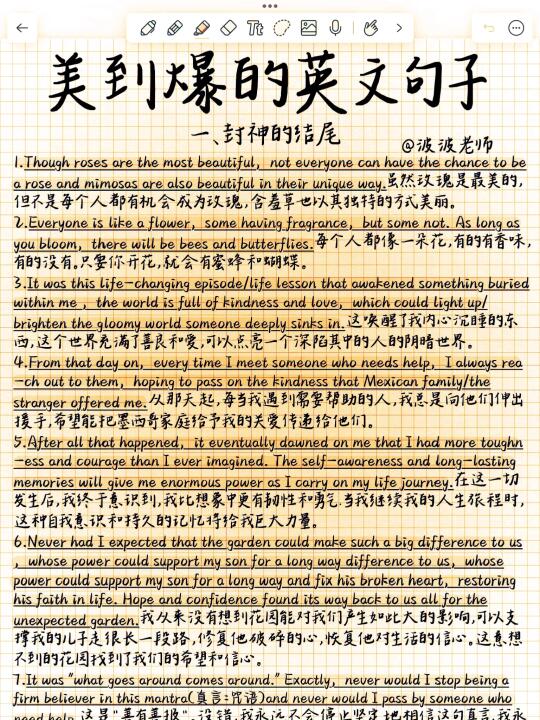 美到爆的英文句子
一、封神的结尾
@波波老师
1.Though roses are the most beautiful, not everyone can have the chance to be
a rose and mimosas are also beautiful in their unique way.虽然玫瑰是最美的,
但不是每个人都有机会成为玫瑰,含羞草也以其独特的方式美丽。
2.Everyone is like a flower, some having fragrance, but some not. As long as
you bloom, there will be bees and butterflies.每个人都像一朵花,有的有香味,
有的没有。只要你开花,就会有蜜蜂和蝴蝶。
3.It was this life-changing episode/life lesson that awakened something buried
within me , the world is full of kindness and love, which could light up/
brighten the gloomy world someone deeply sinks in.这唤醒了我内心沉睡的东
西,这个世界充满了善良和爱,可以点亮一个深陷其中的人的阴暗世界。
4.From that day on, every time I meet someone who needs help, I always rea
-ch out to them, hoping to pass on the kindness that Mexican family/the
stranger offered me.从那天起,每当我遇到需要帮助的人,我总是向他们伸出
援手,希望能把墨西哥家庭给予我的关爱传递给他们。
5.After all that happened, it eventually dawned on me that I had more toughn
-ess and courage than I ever imagined. The self-awareness and long-lasting
memories will give me enormous power as I carry on my life journey.在这一切
发生后,我终于意识到,我比想象中更有韧性和勇气。当我继续我的人生旅程时,
这种自我意识和持久的记忆将给我巨大力量。
6.Never had I expected that the garden could make such a big difference to us
, whose power could support my son for a long way difference to us, whose
power could support my son for a long way and fix his broken heart, restoring
his faith in life. Hope and confidence found its way back to us all for the
unexpected garden.我从来没有想到花园能对我们产生如此大的影响,可以支
撑我的儿子走很长一段路,修复他破碎的心,恢复他对生活的信心。这意想
不到的花园找到了我们的希望和信心。
7.It was "what goes around comes around." Exactly, never would I stop being a
firm believer in this mantra(真言;咒语)and never would I pass by someone who
need help.这是"善有善报"。没错,我永远不会停止坚定地相信这句真言,我永